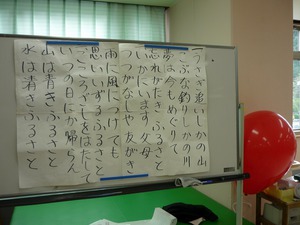 一うさぎ追いしかの山
こぶな釣りしかの川
夢は今もめぐりて
忘れがたきふるさと
いかにいます父母
つつがなしや友がき
雨に風につけても
思いいずるふるさと
こころざしをはたして
いつの日にか帰らん
山は青きふるさと
水は清きふるさと